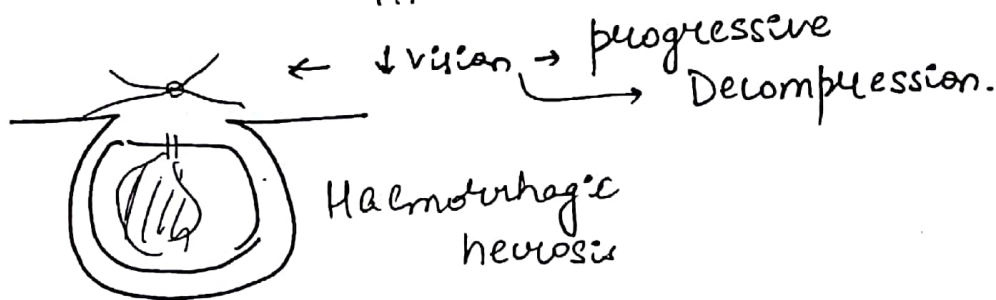 ← ↓ Vision → progressive
→ Decompression.
Haemorrhagic
necrosis